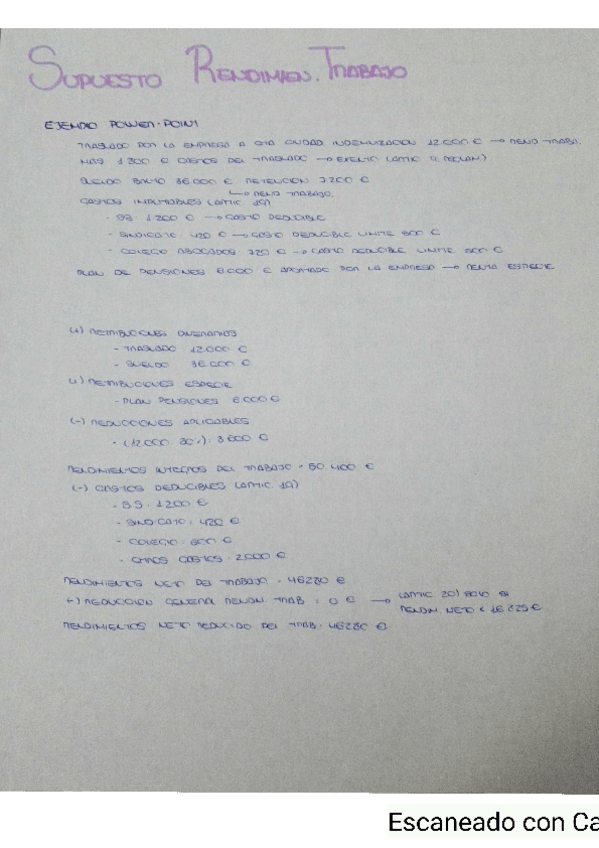 SUPUESTO RENDIMIEN. TRABAJO
EJEMPLO POWER-POINT
TRASLADO POR LA EMPRESA A OTRA CIUDAD INDEMNIZACION 12.000 € → REND TRABA.
MAS 1.300 € GASTOS DEL TRASLADO → EXENTO (ARTIC 9 REGLAM.)
SUELDO BRUTO 36.000 € RETENCION 7.200 €
→ REND TRABAJO.
GASTOS IMPUTABLES (ARTIC. 19)
- SS: 1.200 € → GASTO DEDUCIBLE
- SINDICATO: 420 € → GASTO DEDUCIBLE LIMITE 500 €
- COLEGIO ABOGADOS: 720 € → GASTO DEDUCIBLE LIMITE 500 €
PLAN DE PENSIONES 6.000 € APORTADO POR LA EMPRESA → RENTA ESPECIE
(+) RETRIBUCIONES DINERARIAS
- TRASLADO 12.000 €
- SUELDO 36.000 €
(+) RETRIBUCIONES ESPECIE
- PLAN PENSIONES 6.000 €
(-) REDUCCIONES APLICABLES
- (12.000 · 30%): 3.600 €
RENDIMIENTOS INTEGROS DEL TRABAJO = 50.400 €
(-) GASTOS DEDUCIBLES (ARTIC. 19)
- SS: 1.200 €
- SINDICATO: 420 €
- COLEGIO: 500 €
- OTROS GASTOS: 2.000 €
RENDIMIENTOS NETO DEL TRABAJO = 46280 €
(-) REDUCCION GENERAL RENDIM. TRAB: 0 € → (ARTIC. 20) SOLO SI
RENDIM. NETO < 16.825 €
RENDIMIENTOS NETO REDUCIDO DEL TRAB: 46280 €
Escaneado con Ca